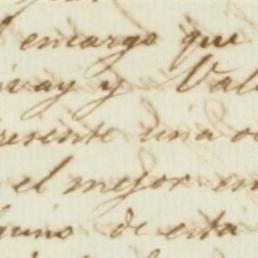 encargo que
y Val
resente una oc
el mejor en
guno de esta